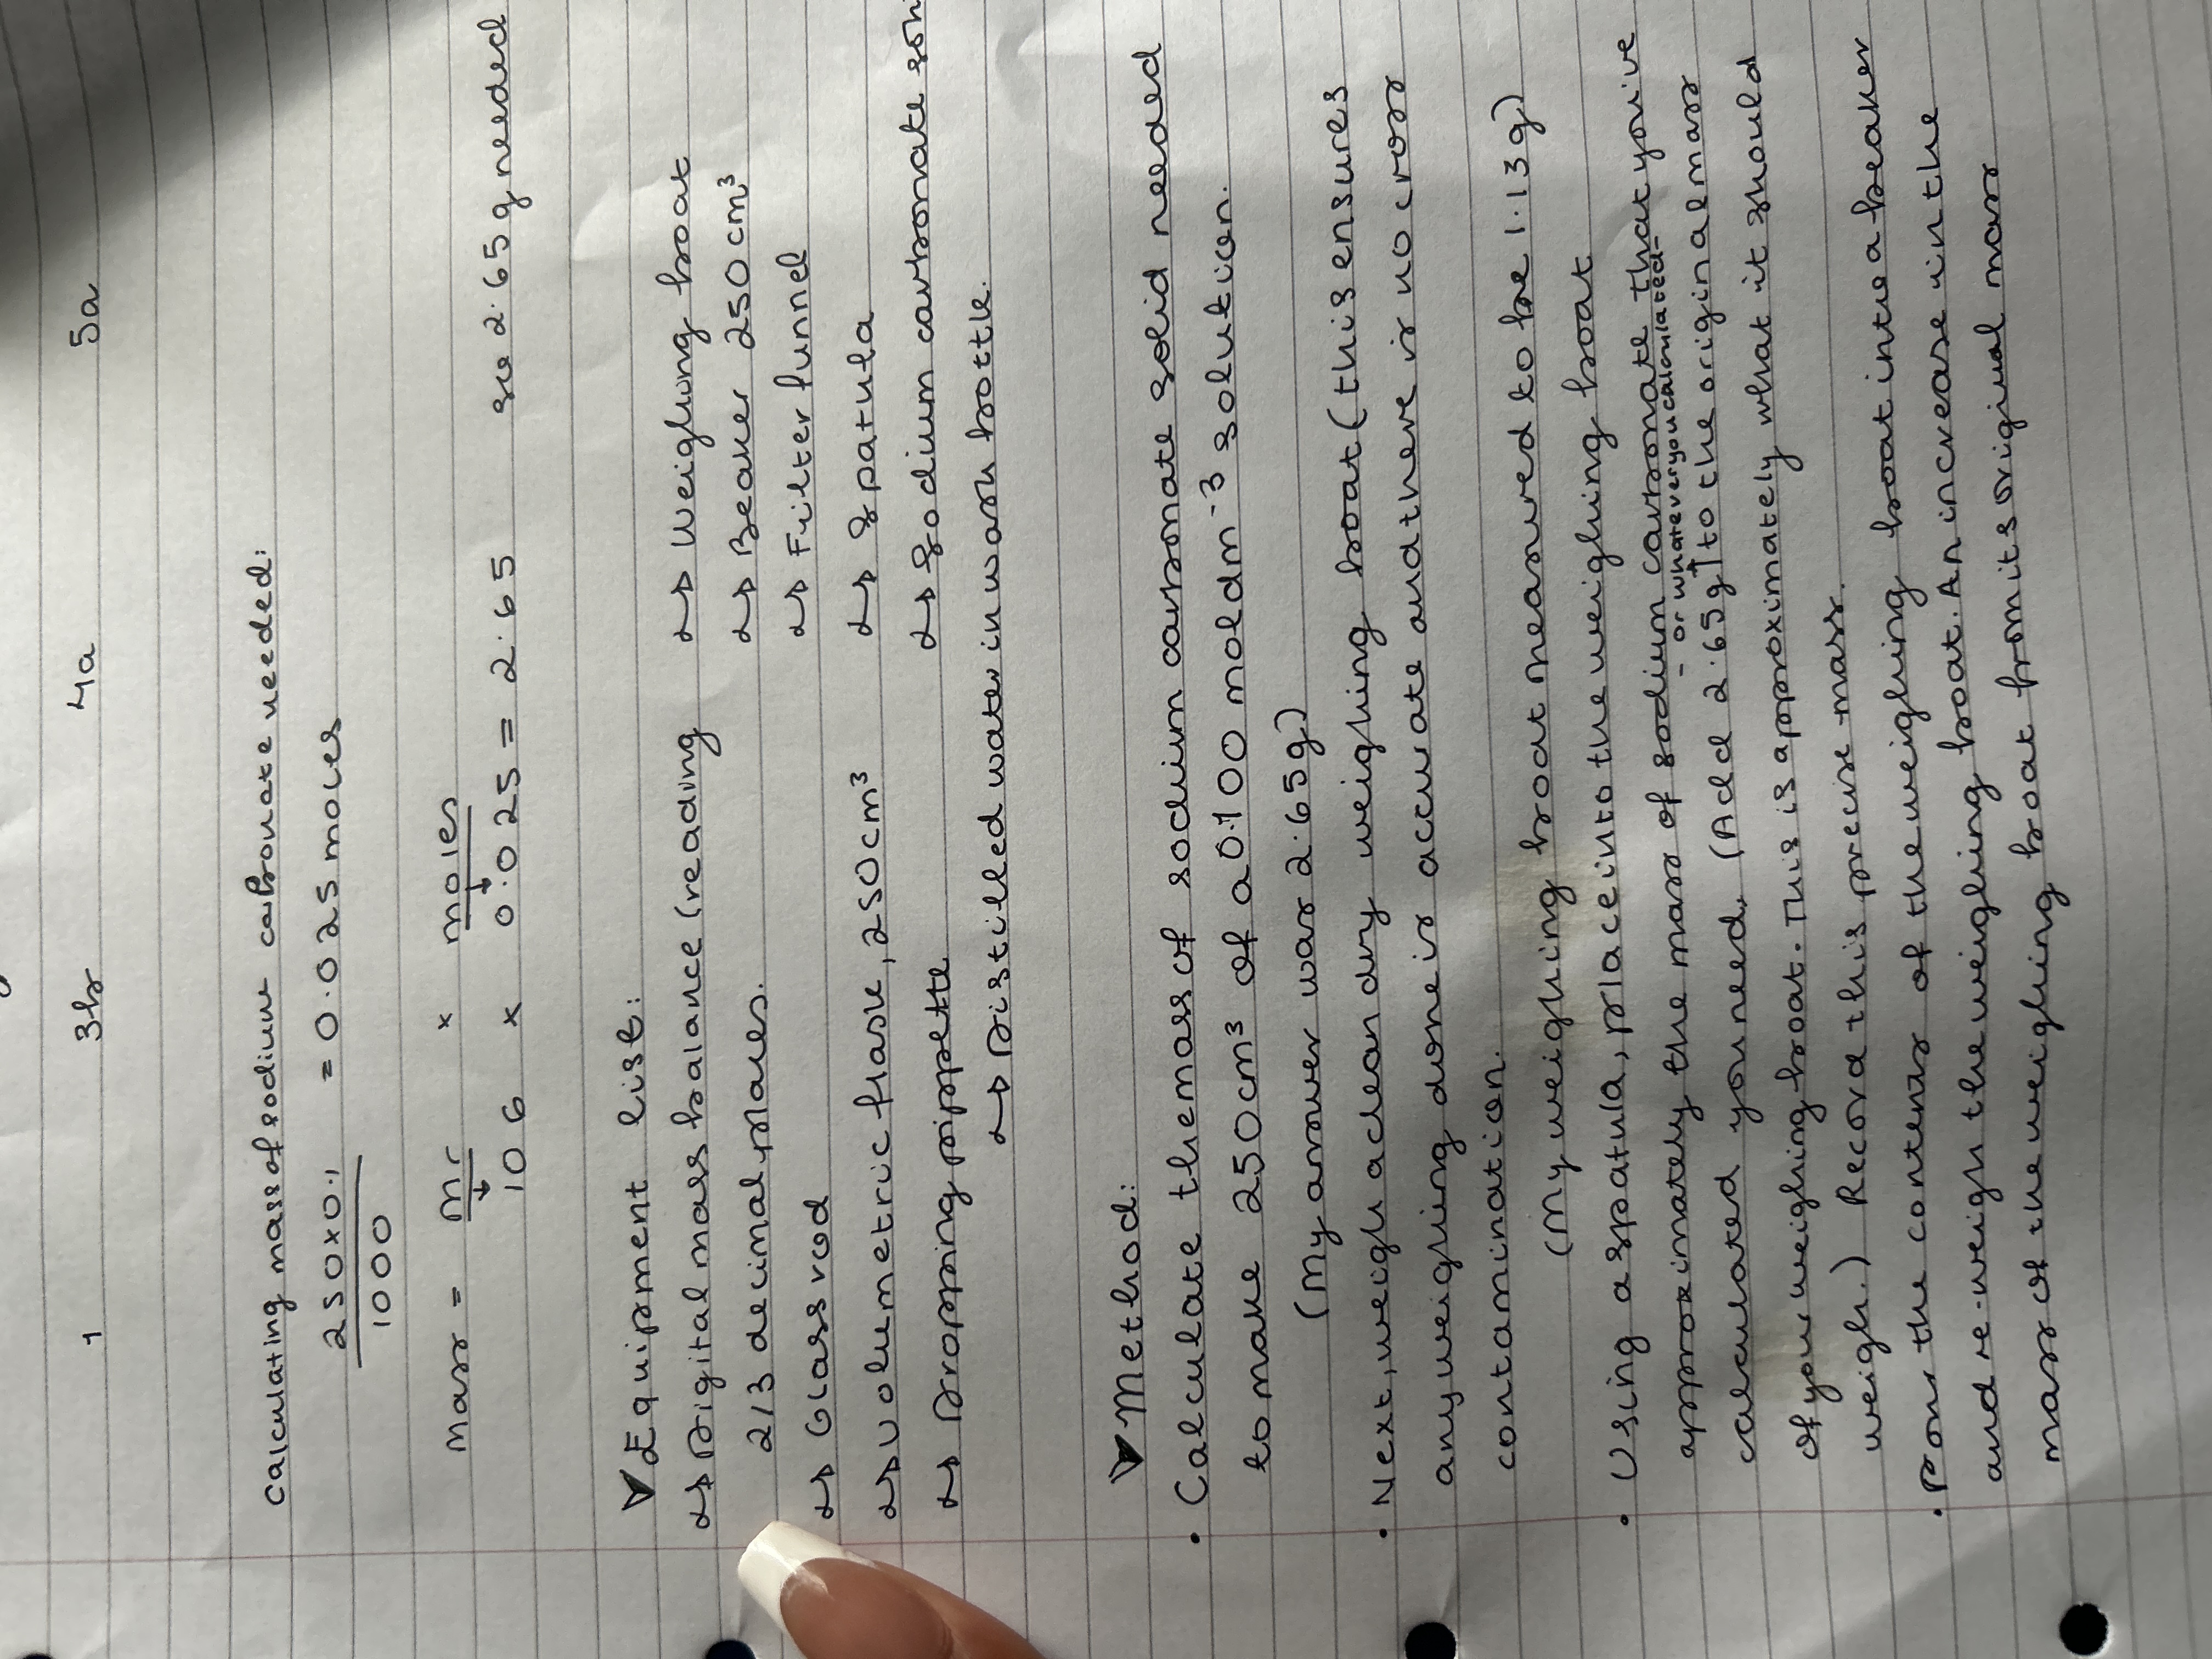 1 3b 4a 5a
Calculating mass of sodium carbonate needed:
250 x 0.1 = 0.025 moles
1000
Mass = Mr x moles
106 x 0.025 = 2.65 so 2.65g needed
Equipment list:
→ Digital mass balance (reading → Weighing boat
2/3 decimal places. → Beaker 250cm³
→ Glass rod → Filter funnel
→ Volumetric flask, 250cm³ → Spatula
→ Dropping pippette → Sodium carbonate
→ Distilled water in wash bottle.
Method:
• Calculate the mass of sodium carbonate solid needed
to make 250cm³ of a 0.100 moldm⁻³ solution.
(My answer was 2.65g)
• Next, weigh a clean dry weighing boat (this ensures
any weighing done is accurate and there is no cross
contamination.
(My weighing boat measured to be 1.13g)
• Using a spatula, place into the weighing boat
approximately the mass of sodium carbonate that you've
- or whatever you calculated -
calculated you need. (Add 2.65g ↑ to the original mass
of your weighing boat. This is approximately what it should
weigh.) Record this precise mass.
• Pour the contents of the weighing boat into a beaker
and re-weigh the weighing boat. An increase in the
mass of the weighing boat from its original mass